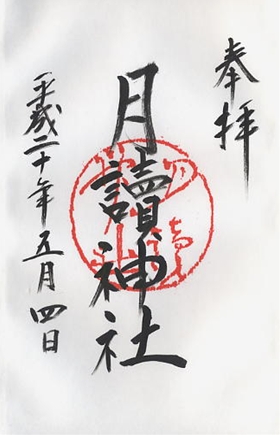 奉拝
月讀神社
平成二十年五月四日